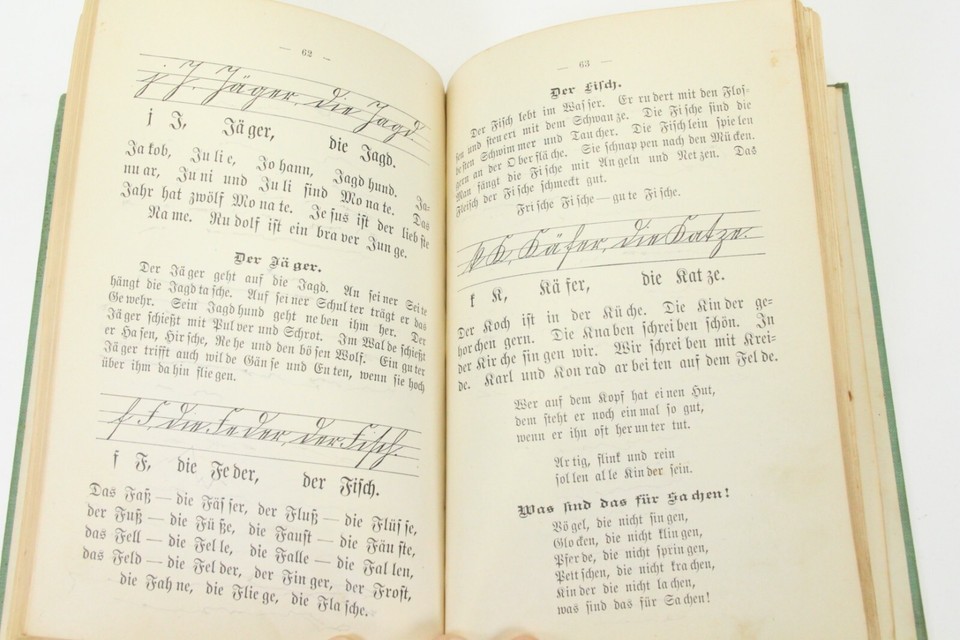 — 62 —
j J. Jäger, die Jagd
j J, Jä ger, die Jagd.
Ja kob, Ju li e, Jo hann, Jagd hund. Ja-
nu ar, Ju ni und Ju li sind Mo na te. Das
Jahr hat zwölf Mo na te. Je sus ist der lieb ste
Na me. Ru dolf ist ein bra ver Jun ge.
Der Jä ger.
Der Jä ger geht auf die Jagd. An sei ner Sei te
hängt die Jagd ta sche. Auf sei ner Schul ter trägt er das
Ge wehr. Sein Jagd hund geht ne ben ihm her. Der
Jä ger schießt mit Pul ver und Schrot. Im Wal de schießt
er Ha sen, Hir sche, Re he und den bö sen Wolf. Ein gu ter
Jä ger trifft auch wil de Gän se und En ten, wenn sie hoch
über ihm da hin flie gen.
f F. die Fe der, der Fisch.
f F, die Fe der, der Fisch.
Das Faß — die Fäs ser, der Fluß — die Flüs se,
der Fuß — die Fü ße, die Faust — die Fäu ste,
das Fell — die Fel le, die Falle — die Fal len,
das Feld — die Fel der, der Fin ger, der Frost,
die Fah ne, die Flie ge, die Fla sche.
— 63 —
Der Fisch.
Der Fisch lebt im Was ser. Er ru dert mit den Flos-
sen und steu ert mit dem Schwan ze. Die Fi sche sind die
be sten Schwim mer und Tau cher. Die Fisch lein spie len
gern an der O ber flä che. Sie schnap pen nach den Mü cken.
Man fängt die Fi sche mit An geln und Net zen. Das
Fleisch der Fi sche schmeckt gut.
Fri sche Fi sche — gu te Fi sche.
k K. Käfer, die Katze.
k K, Kä fer, die Kat ze.
Der Koch ist in der Kü che. Die Kin der ge-
hor chen gern. Die Kna ben schrei ben schön. In
der Kir che sin gen wir. Wir schrei ben mit Krei-
de. Karl und Kon rad ar bei ten auf dem Fel de.
Wer auf dem Kopf hat ei nen Hut,
dem steht er noch ein mal so gut,
wenn er ihn oft her un ter tut.
Ar tig, flink und rein
sol len al le Kin der sein.
Was sind das für Sa chen!
Vö gel, die nicht sin gen,
Glo cken, die nicht klin gen,
Pfer de, die nicht sprin gen,
Peit schen, die nicht kra chen,
Kin der die nicht la chen,
was sind das für Sa chen!